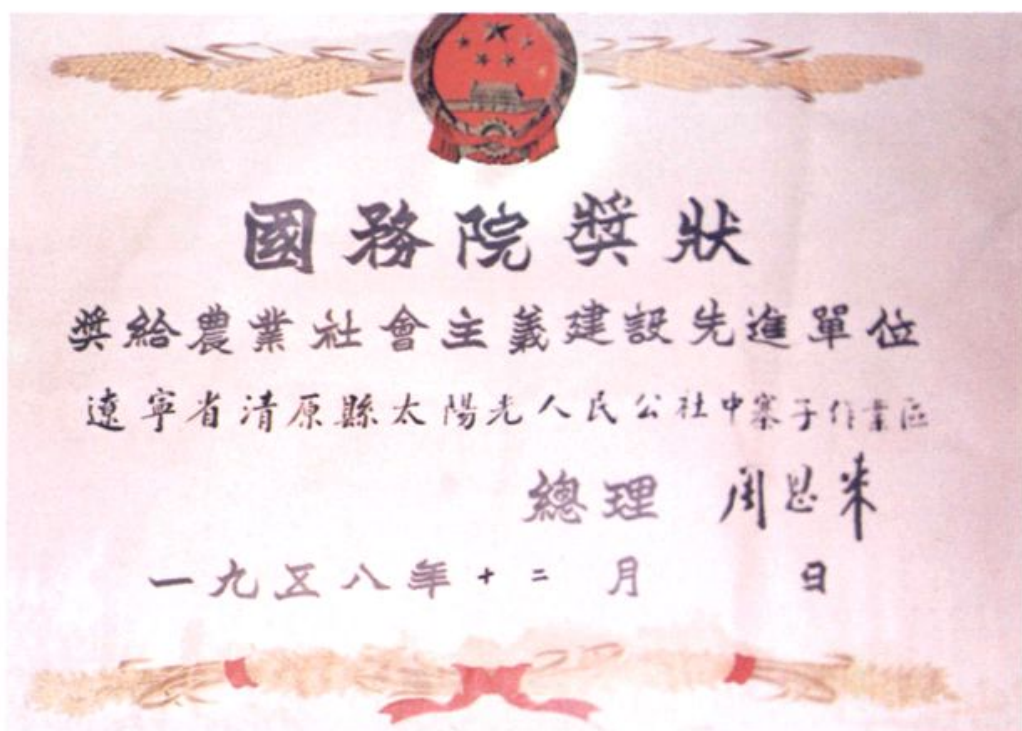 國務院奬狀
奬給農業社會主義建設先進單位
遼寧省清原縣太陽光人民公社中寨子作業區
總理 周恩来
一九五八年十二月 日